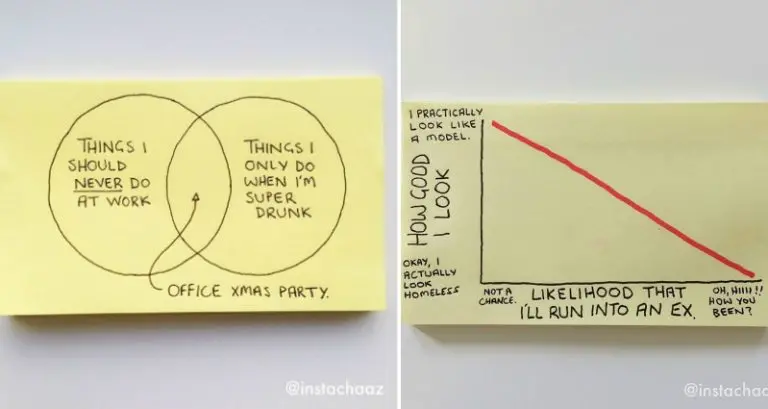 THINGS I
SHOULD
NEVER DO
AT WORK
THINGS I
ONLY DO
WHEN I'M
SUPER
DRUNK
OFFICE XMAS PARTY.
@instachaaz
I PRACTICALLY
LOOK LIKE
A MODEL.
HOW GOOD
I LOOK
OKAY, I
ACTUALLY
LOOK
HOMELESS
NOT A
CHANCE.
LIKELIHOOD THAT
I'LL RUN INTO AN EX.
OH, HIIII!!
HOW YOU
BEEN?
@instachaaz